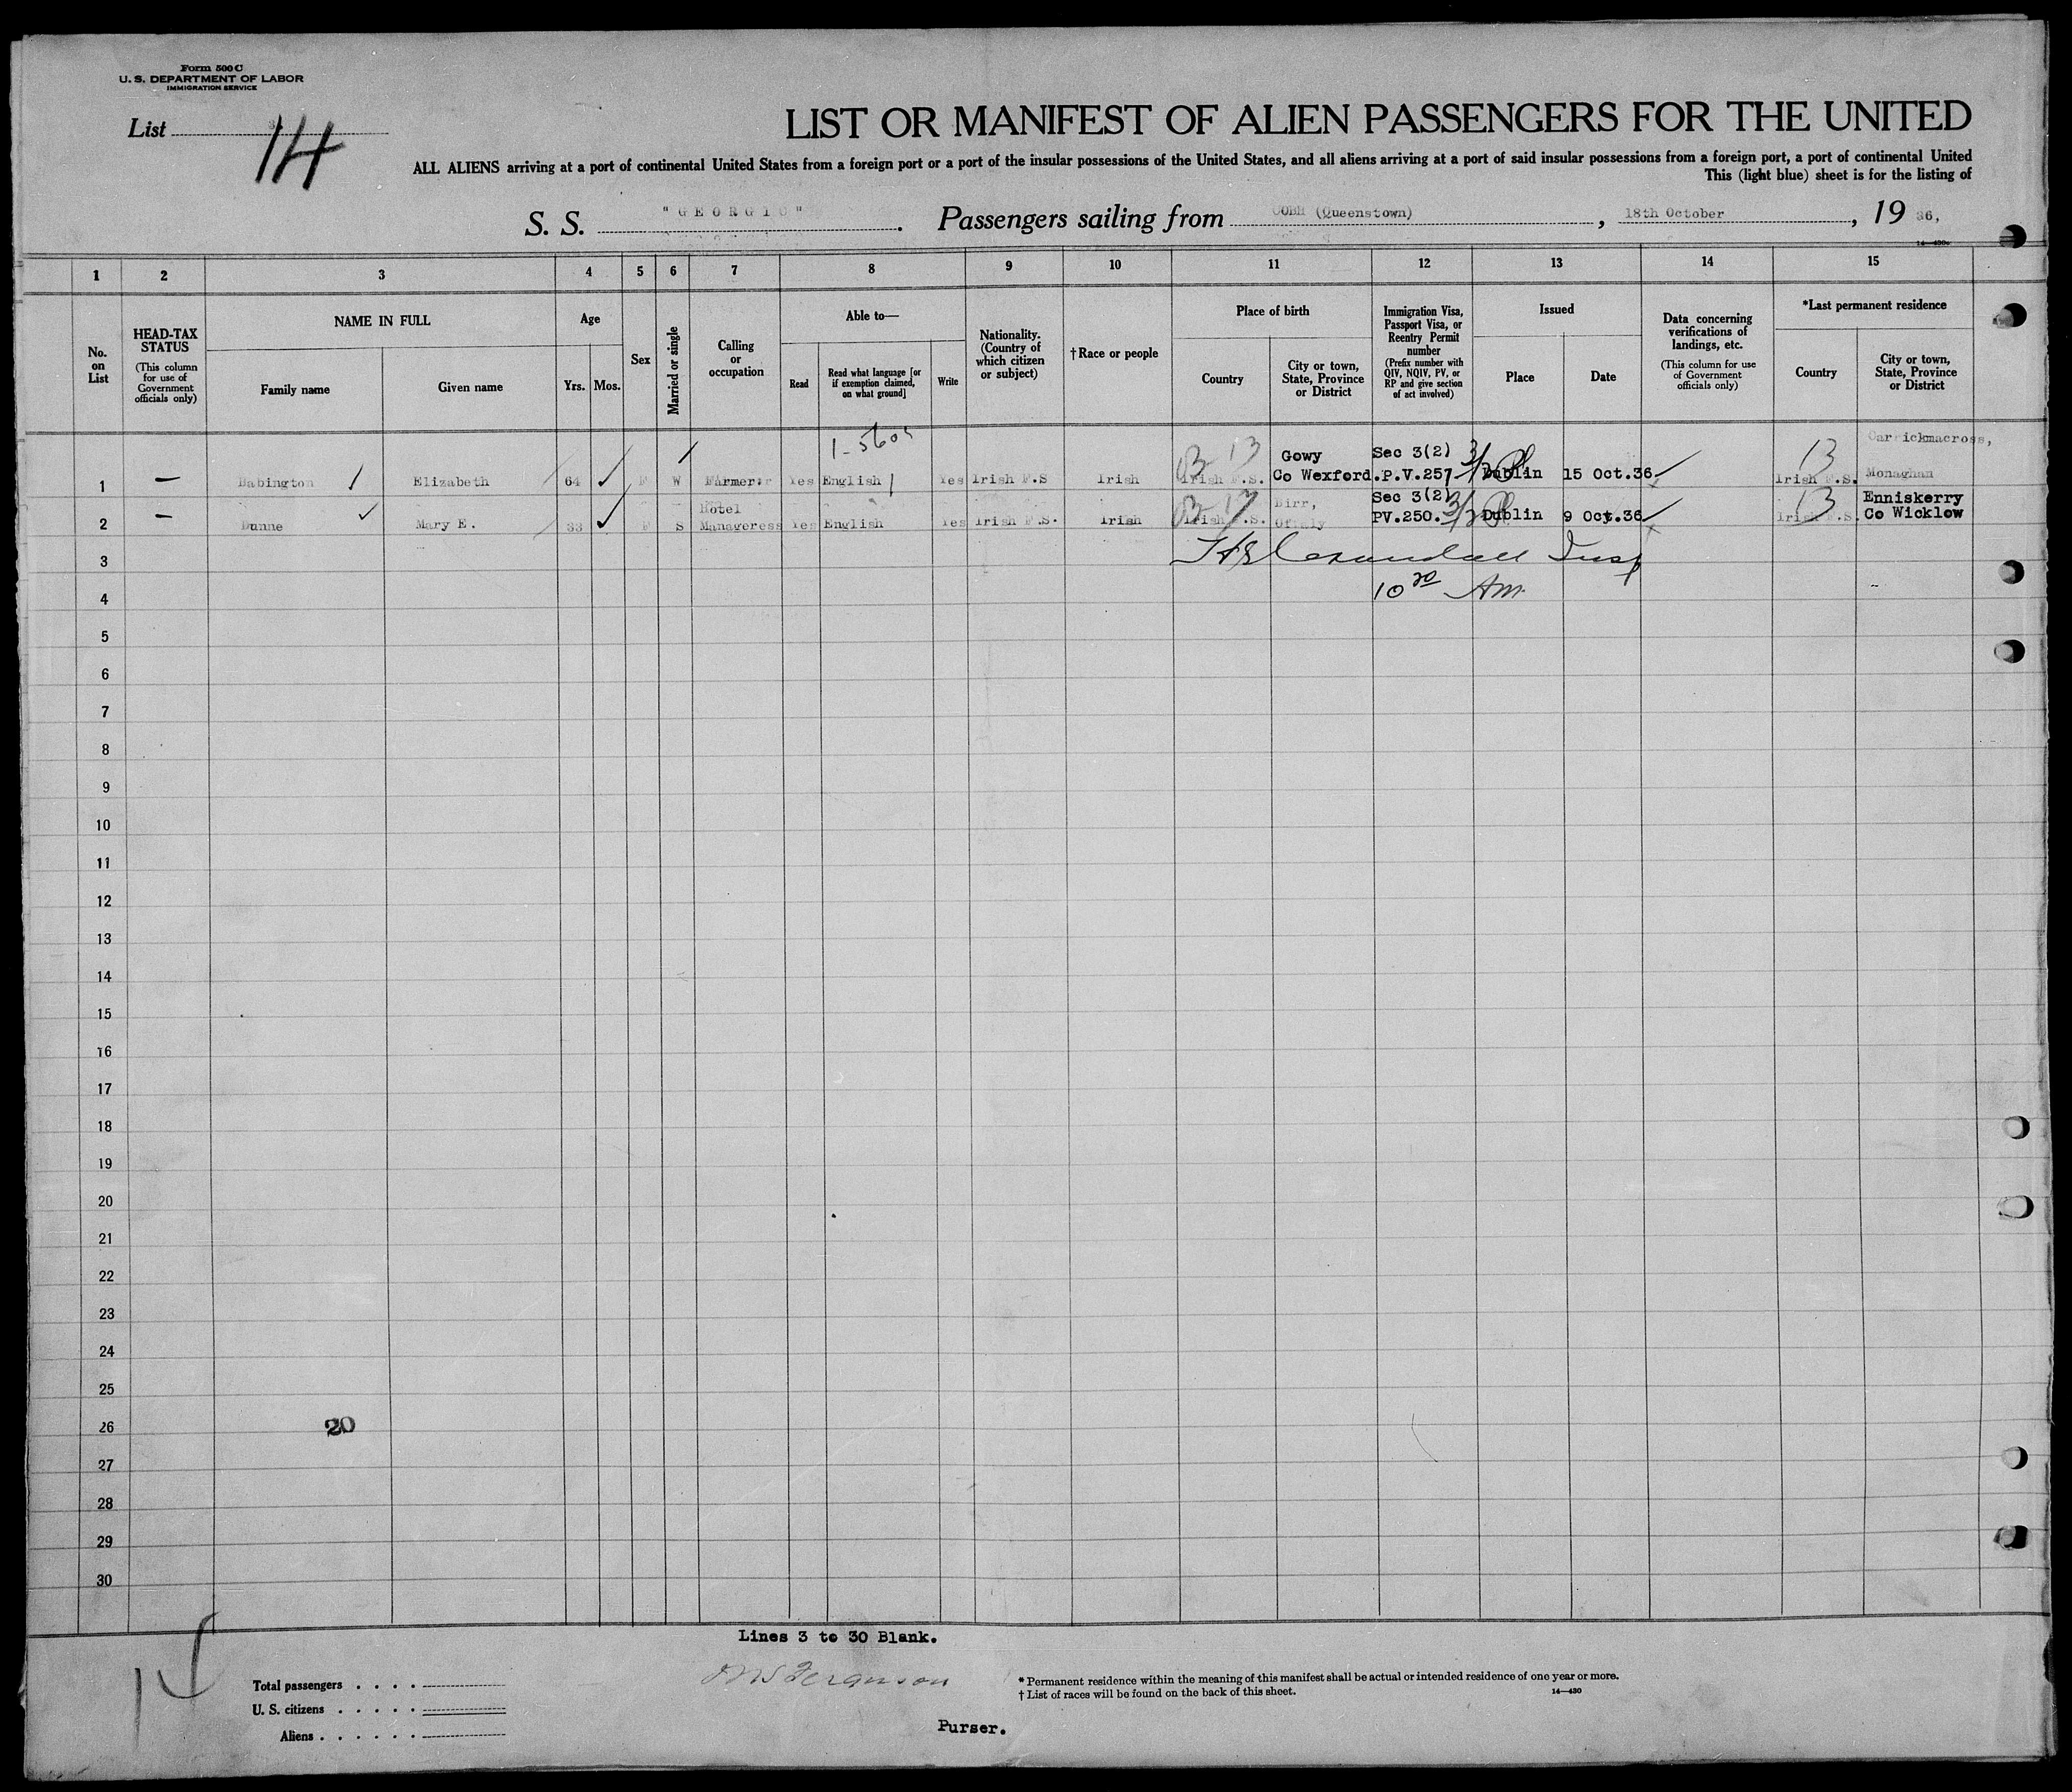 Form 500 C
U. S. DEPARTMENT OF LABOR
IMMIGRATION SERVICE
List
14
LIST OR MANIFEST OF ALIEN PASSENGERS FOR THE UNITED
ALL ALIENS arriving at a port of continental United States from a foreign port or a port of the insular possessions of the United States, and all aliens arriving at a port of said insular possessions from a foreign port, a port of continental United
This (light blue) sheet is for the listing of
S. S. "GEORGIC". Passengers sailing from COBH (Queenstown), 18th October, 19 36,
14—430
1 2 3 4 5 6 7 8 9 10 11 12 13 14 15
No. on List
HEAD-TAX STATUS
(This column for use of Government officials only)
NAME IN FULL
Family name
Given name
Age
Yrs. Mos.
Sex
Married or single
Calling or occupation
Able to—
Read
Read what language [or if exemption claimed, on what ground]
Write
Nationality. (Country of which citizen or subject)
†Race or people
Place of birth
Country
City or town, State, Province or District
Immigration Visa, Passport Visa, or Reentry Permit number
(Prefix number with QIV, NQIV, PV, or RP and give section of act involved)
Issued
Place
Date
Data concerning verifications of landings, etc.
(This column for use of Government officials only)
*Last permanent residence
Country
City or town, State, Province or District
13 Gowy Sec 3(2) 13 Carrickmacross,
1 — Babington Elizabeth 64 F W Farmer Yes English Yes Irish F.S Irish Irish F.S. Co Wexford. P.V.257 Dublin 15 Oct.36 Irish F.S. Monaghan
Hotel Birr, Sec 3(2) 13 Enniskerry
2 — Dunne Mary E. 33 F S Manageress Yes English Yes Irish F.S. Irish Irish F.S. Offaly PV.250. Dublin 9 Oct.36 Irish F.S. Co Wicklow
3
Insp
4
10 20 Am
5
6
7
8
9
10
11
12
13
14
15
16
17
18
19
20
21
22
23
24
25
26 20
27
28
29
30
Lines 3 to 30 Blank.
Ferguson
Purser.
Total passengers . . . .
U. S. citizens . . . . .
Aliens . . . . . .
* Permanent residence within the meaning of this manifest shall be actual or intended residence of one year or more.
† List of races will be found on the back of this sheet.
14—430